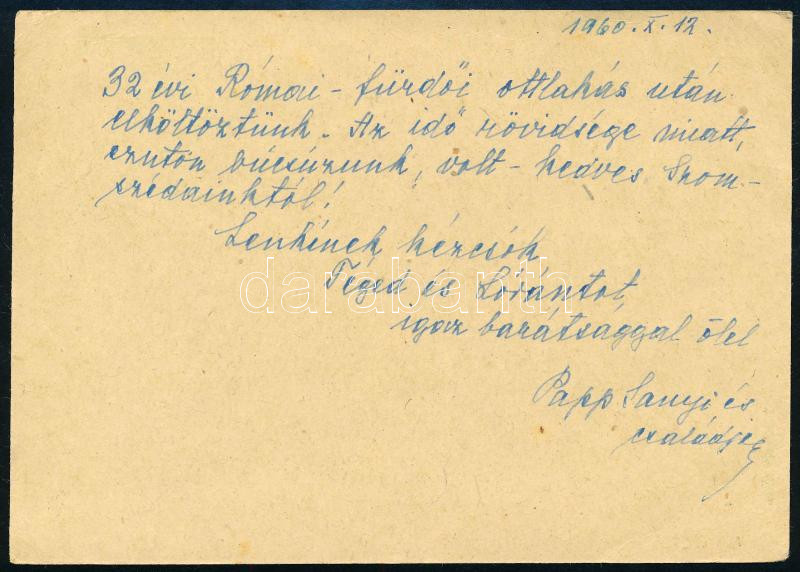 1960. X. 12.
32 évi Római-fürdői ottlakás után
elköltöztünk. Az idő rövidsége miatt,
ezuton búcsúzunk, volt-kedves Szom-
szédainktól!
Lenkének kézcsók
Téged és Lórántot,
igaz barátsággal ölel
Papp Sanyi és
családja
darabanth